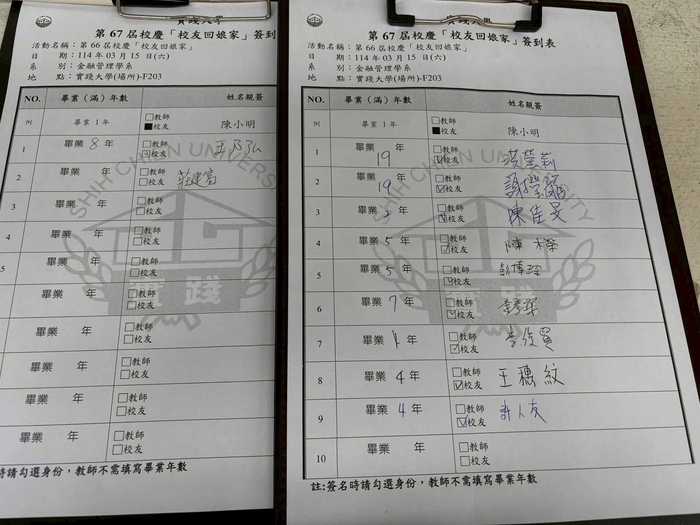 實踐大學
第 67 屆校慶「校友回娘家」簽到
活動名稱：第 66 屆校慶「校友回娘家」
日 期：114 年 03 月 15 日(六)
系 別：金融管理學系
地 點：實踐大學(場所)-F203
NO. 畢業（滿）年數 姓名親簽
例 畢業 1 年 □教師 ■校友 陳小明
1 畢業 8 年 □教師 校友
2 畢業 年 □教師 □校友 莊建富
3 畢業 年 □教師 □校友
4 畢業 年 □教師 □校友
5 畢業 年 □教師 □校友
畢業 年 □教師 □校友
畢業 年 □教師 □校友
畢業 年 □教師 □校友
畢業 年 □教師 □校友
畢業 年 □教師 □校友
時請勾選身份，教師不需填寫畢業年數
SHIH CHIEN UNIVERSITY
實踐
實踐大學
第 67 屆校慶「校友回娘家」簽到表
活動名稱：第 66 屆校慶「校友回娘家」
日 期：114 年 03 月 15 日(六)
系 別：金融管理學系
地 點：實踐大學(場所)-F203
NO. 畢業（滿）年數 姓名親簽
例 畢業 1 年 □教師 ■校友 陳小明
1 畢業 19 年 □教師 ☑校友 洪瑩莉
2 畢業 19 年 □教師 ☑校友
3 畢業 年 □教師 ☑校友 陳佳旻
4 畢業 5 年 □教師 ☑校友 陳
5 畢業 5 年 □教師 ☑校友 彭博
6 畢業 7 年 □教師 ☑校友
7 畢業 年 □教師 ☑校友 李
8 畢業 4 年 □教師 ☑校友 王穗紋
9 畢業 4 年 □教師 ☑校友 許人友
10 畢業 年 □教師 □校友
註:簽名時請勾選身份，教師不需填寫畢業年數
SHIH CHIEN UNIVERSITY
實踐